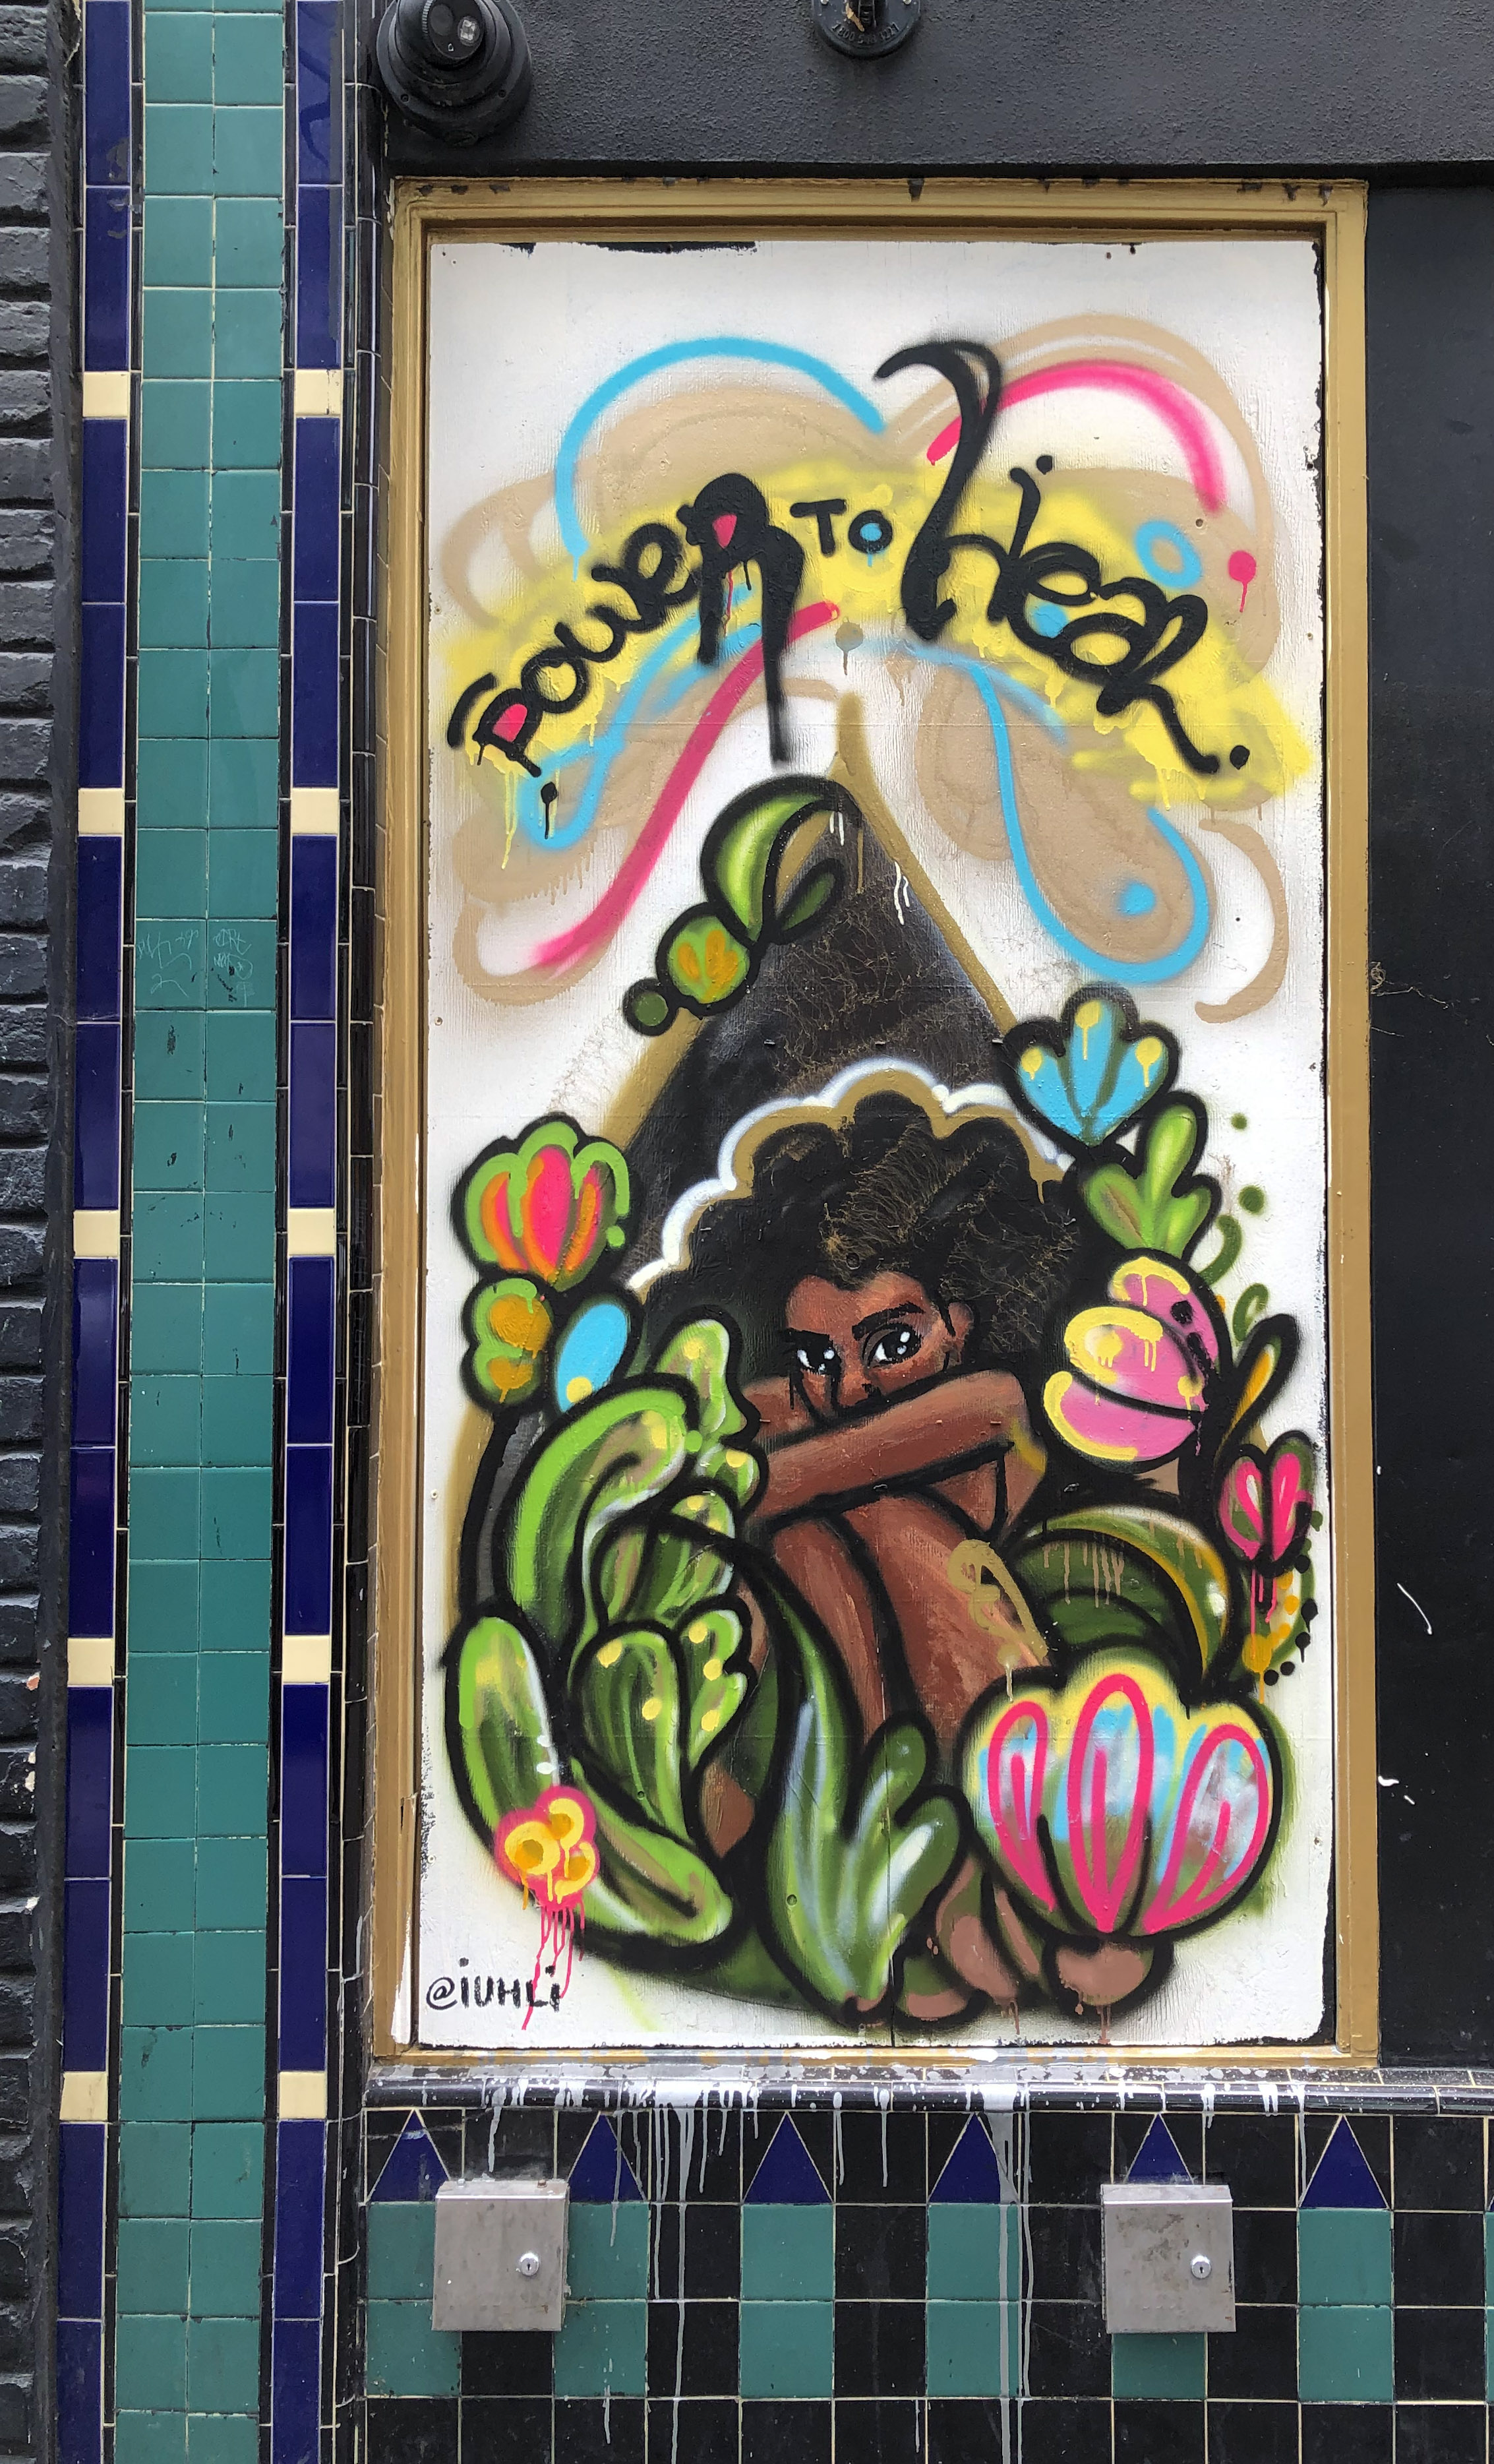 POWER TO Heal.
@IUHLI